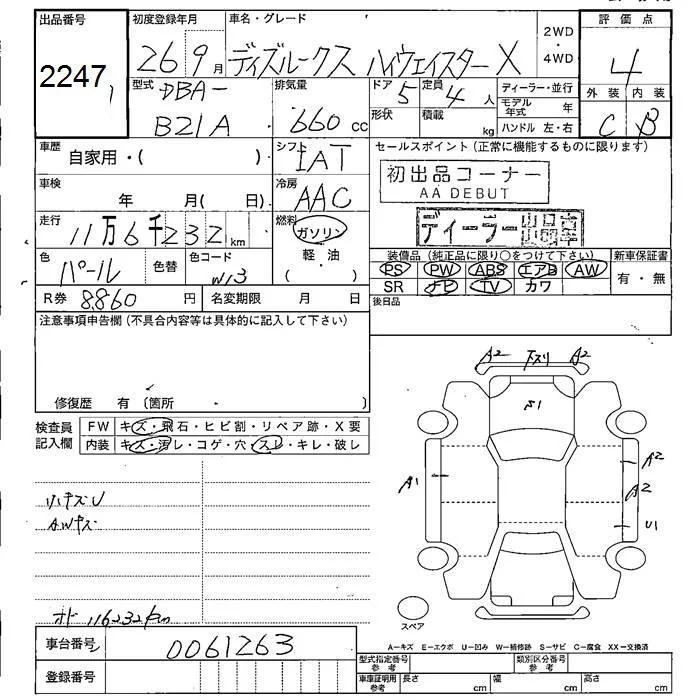 出品番号
2247
初度登録年月
26 9月
車名・グレード
デイズルークス ハイウェイスターX
2WD
・
4WD
評価点
4
外装 内装
C B
型式
DBA-
B21A
排気量
660 cc
ドア
5
定員
4人
形状
積載
kg
ディーラー・並行
モデル年式 年
ハンドル 左・右
車歴
自家用・( )
シフト
IAT
セールスポイント (正常に機能するものに限ります)
初出品コーナー
AA DEBUT
ディーラー
車検
年 月( 日)
冷房
AAC
走行
11万6千232km
燃料
ガソリン
軽・油
( )
色
パール
色替
色コード
W13
装備品 (純正品に限り○をつけて下さい)
新車保証書
PS PW ABS エアB AW
SR ナビ TV カワ
有・無
R券 8860円
名変期限 月 日
後日品
注意事項申告欄 (不具合内容等は具体的に記入して下さい)
修復歴 有 (箇所 )
検査員
記入欄
FW キズ・飛石・ヒビ割・リペア跡・X要
内装 キズ・汚レ・コゲ・穴・スレ・キレ・破レ
リハキズU
AWキズ
オド 116232km
A2 下スリ A2
A1
A2
A2
U1
スペア
A−キズ E−エクボ U−凹み W−補修跡 S−サビ C−腐食 XX−交換済
車台番号
0061263
登録番号
型式指定番号
参考
類別区分番号
参考
車庫証明用
参考
長さ cm
幅 cm
高さ cm